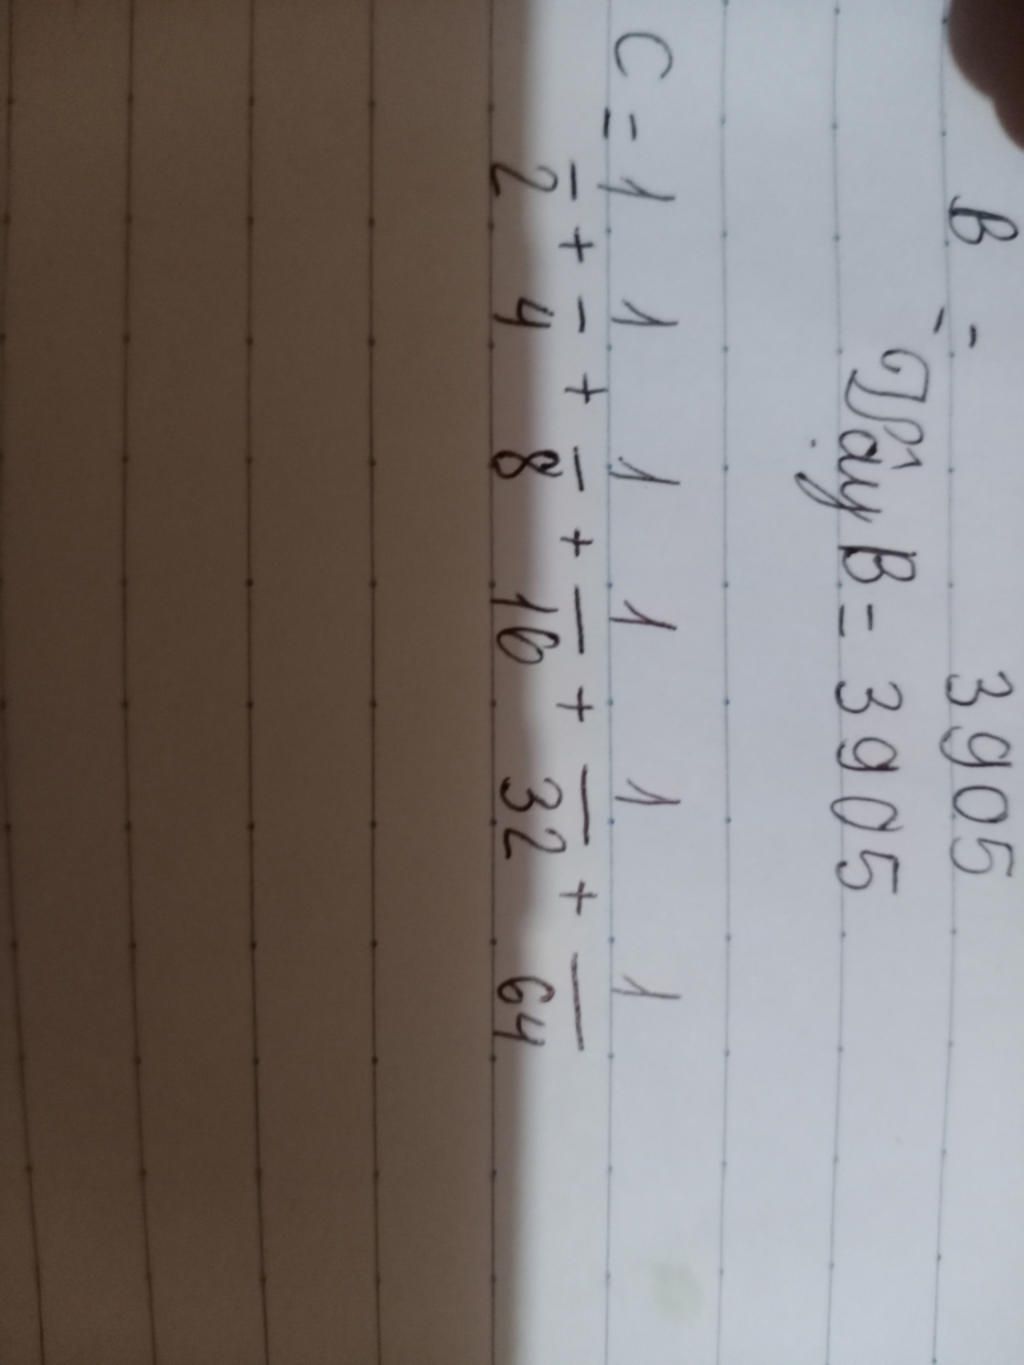 B = 3905
Vậy B = 3905
C = 1/2 + 1/4 + 1/8 + 1/16 + 1/32 + 1/64